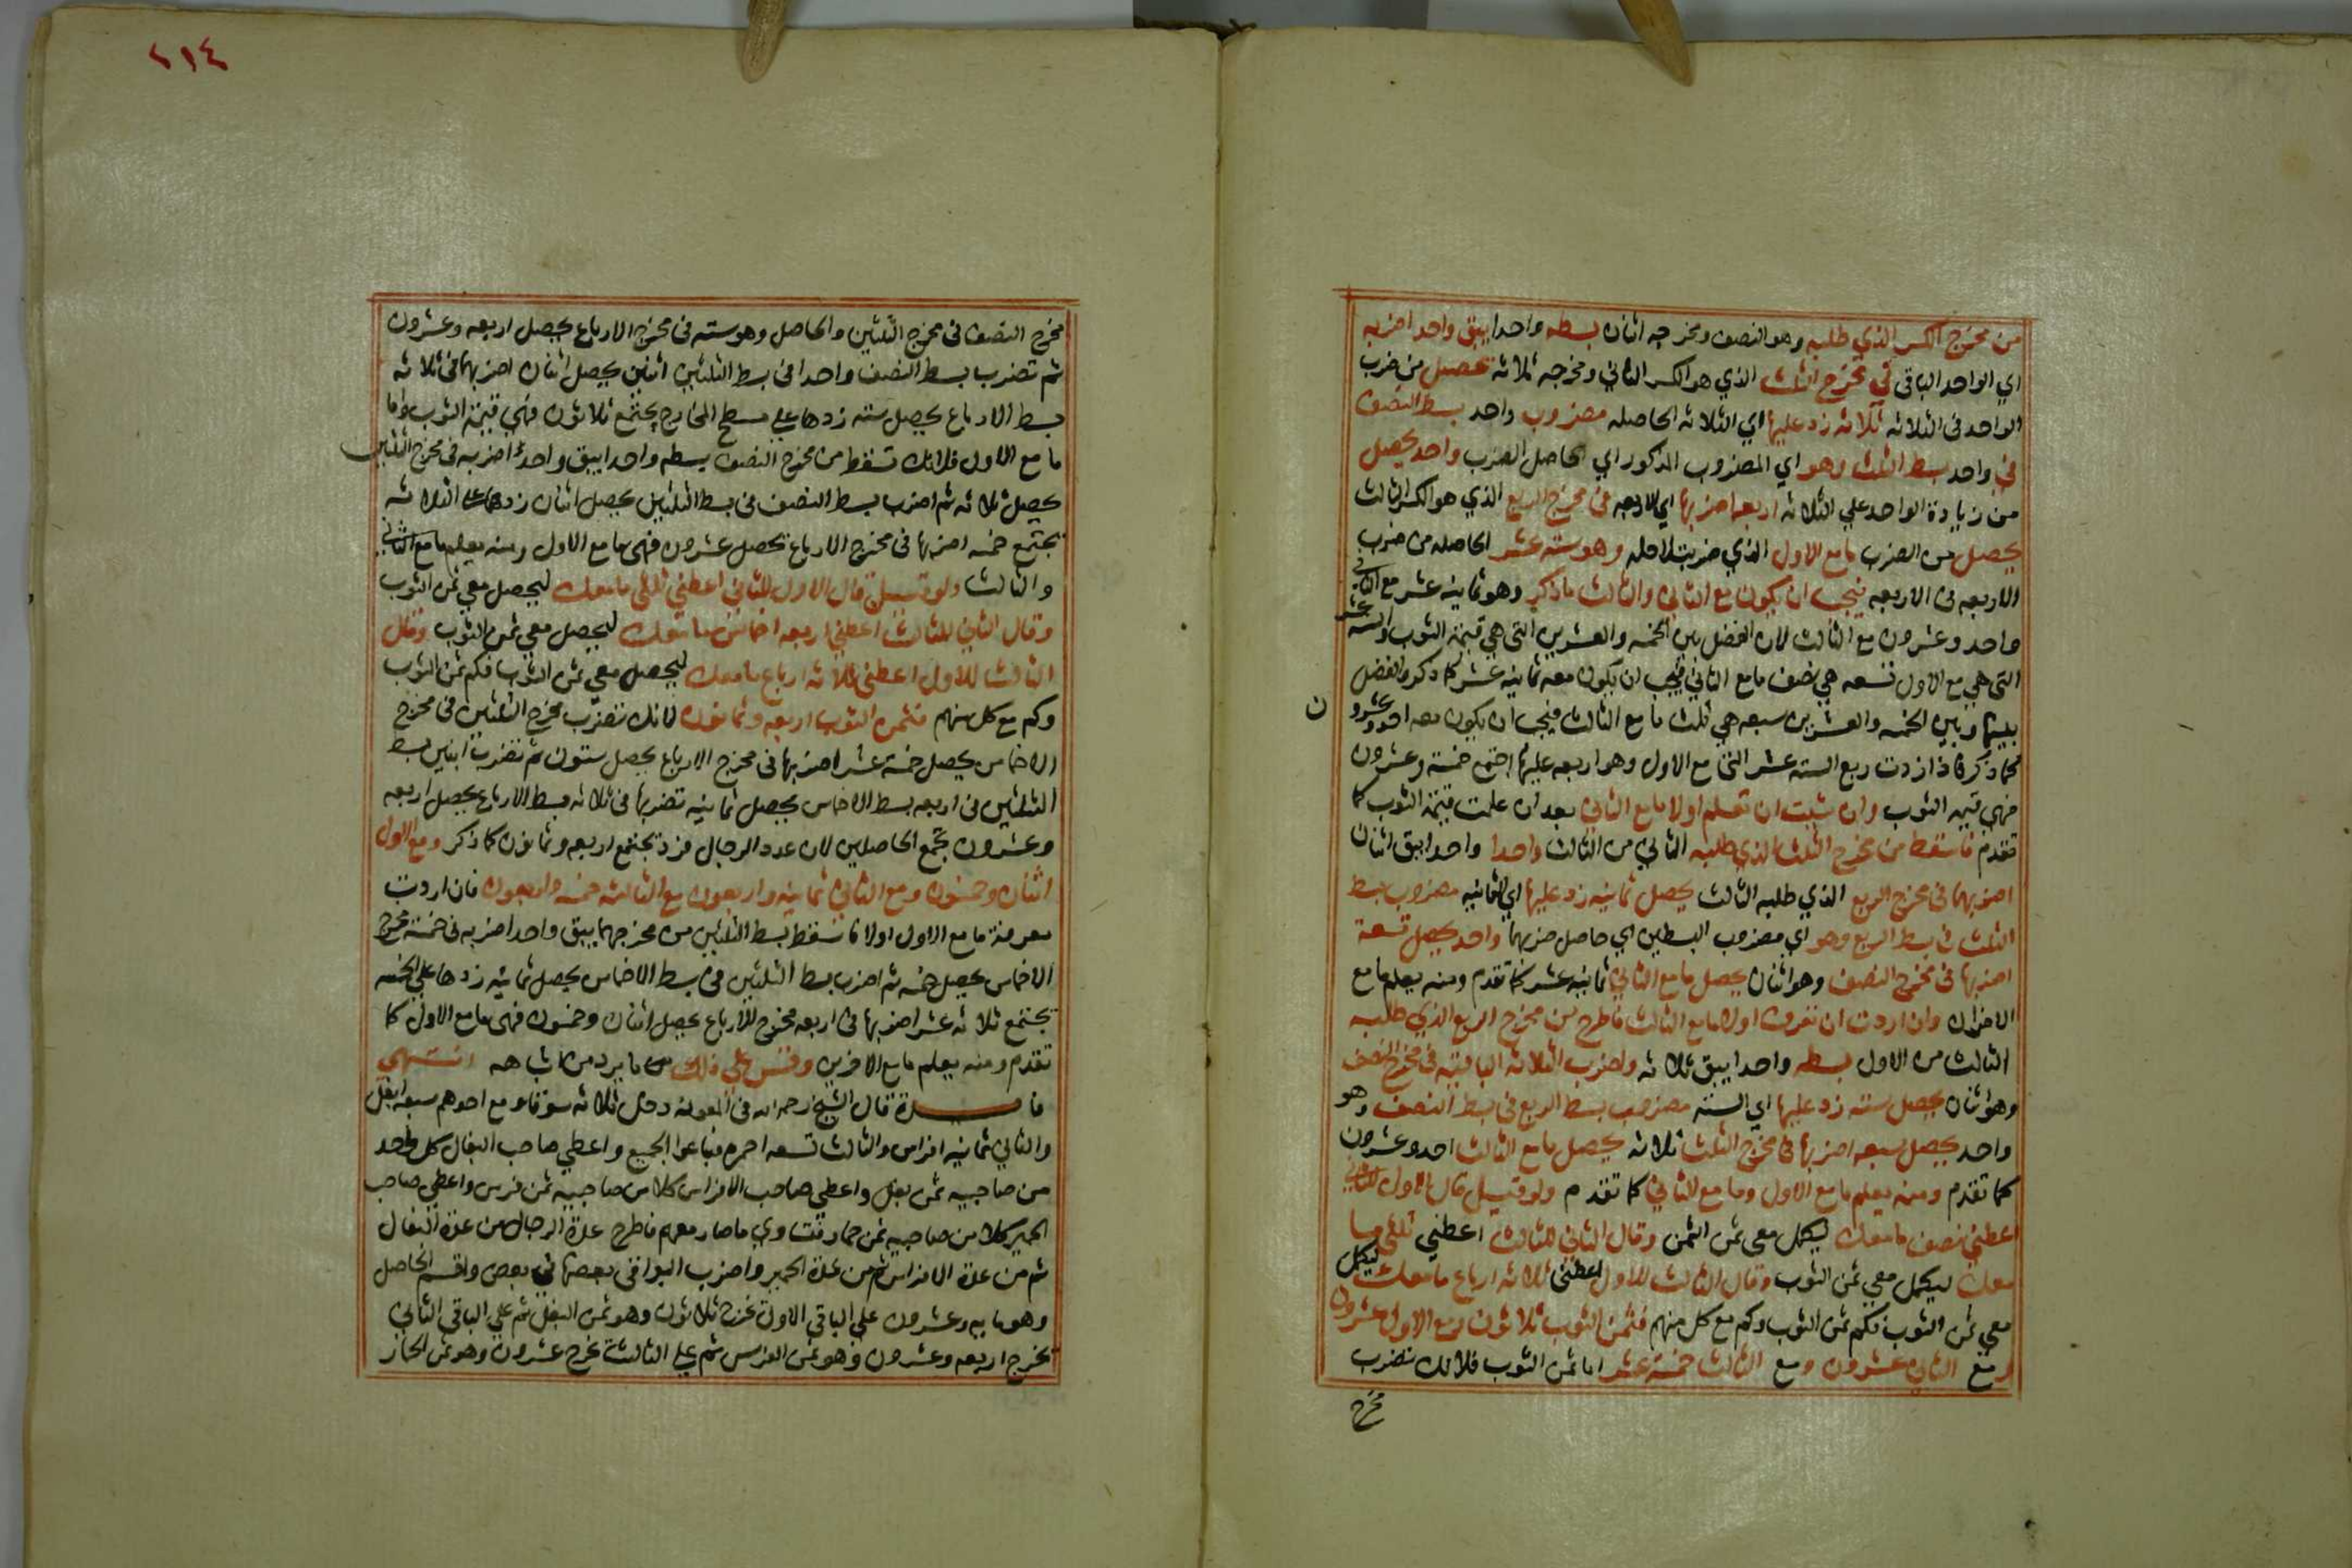 من مخرج الكسر الذي طلبه وهو النصف ومخرجه اثنان بسطه واحدا يبق واحد اضربه
اي الواحد الباقي في مخرج الثلث الذي هو الكسر الثاني ومخرجه ثلاثة تحصل من ضرب
الواحد في الثلاثه ثلاثه زد عليها اي الثلاثه الحاصله مضروب واحد بسط النصف
في واحد بسط الثلث وهو اي المضروب المذكور اي الحاصل الضرب واحد يحصل
من زيادة الواحد علي الثلاثه اربعه اضربها اي الاربعه في مخرج الربع الذي هو الكسر الثالث
يحصل من الضرب ما مع الاول الذي ضربت لاجله وهو ستة عشر الحاصله من ضرب
الاربعه في الاربعه فيجب ان يكون مع الثاني والثالث ما ذكر وهو ثمانيه عشر مع الثاني
واحد وعشرون مع الثالث لان الفضل بين الخمسه والعشرين التي هي قيمة الثوب والسته عشر
التي هي مع الاول تسعه هي نصف ما مع الثاني فيجب ان يكون معه ثمانيه عشر كما ذكر والفضل
بينها وبين الخمسه والعشرين سبعه هي ثلث ما مع الثالث فيجب ان يكون معه احد وعشرون
كما ذكر فاذا زدت ربع الستة عشر التي مع الاول وهو اربعه عليها اجتمع خمسة وعشرون
فهي قيمة الثوب وان شئت ان تعلم اولا ما مع الثاني بعد ان علمت قيمة الثوب كما
تقدم فاسقط من مخرج الثلث الذي طلبه الثاني من الثالث واحدا واحدا يبق اثنان
اضربهما في مخرج الربع الذي طلبه الثالث يحصل ثمانيه زد عليها اي الثمانيه مضروب بسط
الثلث في بسط الربع وهو اي مضروب البسطين اي حاصل ضربهما واحد يحصل تسعة
اضربها في مخرج النصف وهو اثنان يحصل ما مع الثاني ثمانيه عشر كما تقدم ومنه يعلم ما مع
الاخران وان اردت ان تعرف اولا ما مع الثالث فاطرح من مخرج الربع الذي طلبه
الثالث من الاول بسطه واحدا يبق ثلاثه واضرب الثلاثه الباقيه في مخرج النصف
وهو اثنان يحصل سته زد عليها اي السته مضروب بسط الربع في بسط النصف وهو
واحد يحصل سبعه اضربها في مخرج الثلث ثلاثه يحصل ما مع الثالث احد وعشرون
كما تقدم ومنه يعلم ما مع الاول وما مع الثاني كما تقدم ولو قيل قال الاول للثاني
اعطني نصف ما معك ليكمل معي ثمن الثمن وقال الثاني للثالث اعطني ثلثي ما
معك ليكمل معي ثمن الثوب وقال الثالث للاول اعطني ثلاثه ارباع ما معك ليكمل
معي ثمن الثوب فكم ثمن الثوب وكم مع كل منهم فثمن الثوب ثلاثون ومع الاول عشرون
ومع الثاني عشرون ومع الثالث خمسة عشر اما ثمن الثوب فلانك تضرب
مخرج
٢١٤
مخرج النصف في مخرج الثلثين والحاصل وهو سته في مخرج الارباع يحصل اربعه وعشرون
ثم تضرب بسط النصف واحدا في بسط الثلثين اثنين يحصل اثنان اضربهما في ثلاثه
بسط الارباع يحصل سته زدها علي مسطح المخارج يجتمع ثلاثون فهي قيمة الثوب واما
ما مع الاول فلانك تسقط من مخرج النصف بسطه واحدا يبق واحد اضربه في مخرج الثلثين
يحصل ثلاثه ثم اضرب بسط النصف في بسط الثلثين يحصل اثنان زدهما علي الثلاثه
يجتمع خمسه اضربها في مخرج الارباع يحصل عشرون فهي ما مع الاول ومنه يعلم ما مع الثاني
والثالث ولو قيل قال الاول للثاني اعطني ثلثي ما معك ليحصل معي ثمن الثوب
وقال الثاني للثالث اعطني اربعه اخماس ما معك ليحصل معي ثمن الثوب وقال
الثالث للاول اعطني ثلاثه ارباع ما معك ليحصل معي ثمن الثوب فكم ثمن الثوب
وكم مع كل منهم فثمن الثوب اربعه وثمانون لانك تضرب مخرج الثلثين في مخرج
الاخماس يحصل خمسة عشر اضربها في مخرج الارباع يحصل ستون ثم تضرب اثنين بسط
الثلثين في اربعه بسط الاخماس يحصل ثمانيه تضربها في ثلاثه بسط الارباع يحصل اربعه
وعشرون تجمع الحاصلين لان عدد الرجال فرد يجتمع اربعه وثمانون كما ذكر ومع الاول
اثنان وخمسون ومع الثاني ثمانيه واربعون مع الثالث خمسه واربعون فان اردت
معرفة ما مع الاول اولا فاسقط بسط الثلثين من مخرجهما يبق واحد اضربه في خمسة مخرج
الاخماس يحصل خمسه ثم اضرب بسط الثلثين في بسط الاخماس يحصل ثمانيه زدها علي الخمسه
يجتمع ثلاثه عشر اضربها في اربعه مخرج الارباع يحصل اثنان وخمسون فهي ما مع الاول كما
تقدم ومنه يعلم ما مع الاخرين وقس علي ذلك ما يرد من اشباهه انتهي
فائدة قال الشيخ رحمه الله في المعونه دخل ثلاثه سوقا ومع احدهم سبعه ابغل
والثاني ثمانيه افراس والثالث تسعه احمره فباعوا الجميع واعطي صاحب البغال كل واحد
من صاحبيه ثمن بغل واعطي صاحب الافراس كلا من صاحبيه ثمن فرس واعطي صاحب
الحمير كلا من صاحبيه ثمن حمار فتساوي ما صار معهم فاطرح عدة الرجال من عدة البغال
ثم من عدة الافراس ثم من عدة الحمير واضرب البواقي بعضها في بعض واقسم الحاصل
وهو مايه وعشرون علي الباقي الاول يخرج ثلاثون وهو ثمن البغل ثم علي الباقي الثاني
يخرج اربعه وعشرون وهو ثمن الفرس ثم علي الثالث يخرج عشرون وهو ثمن الحمار